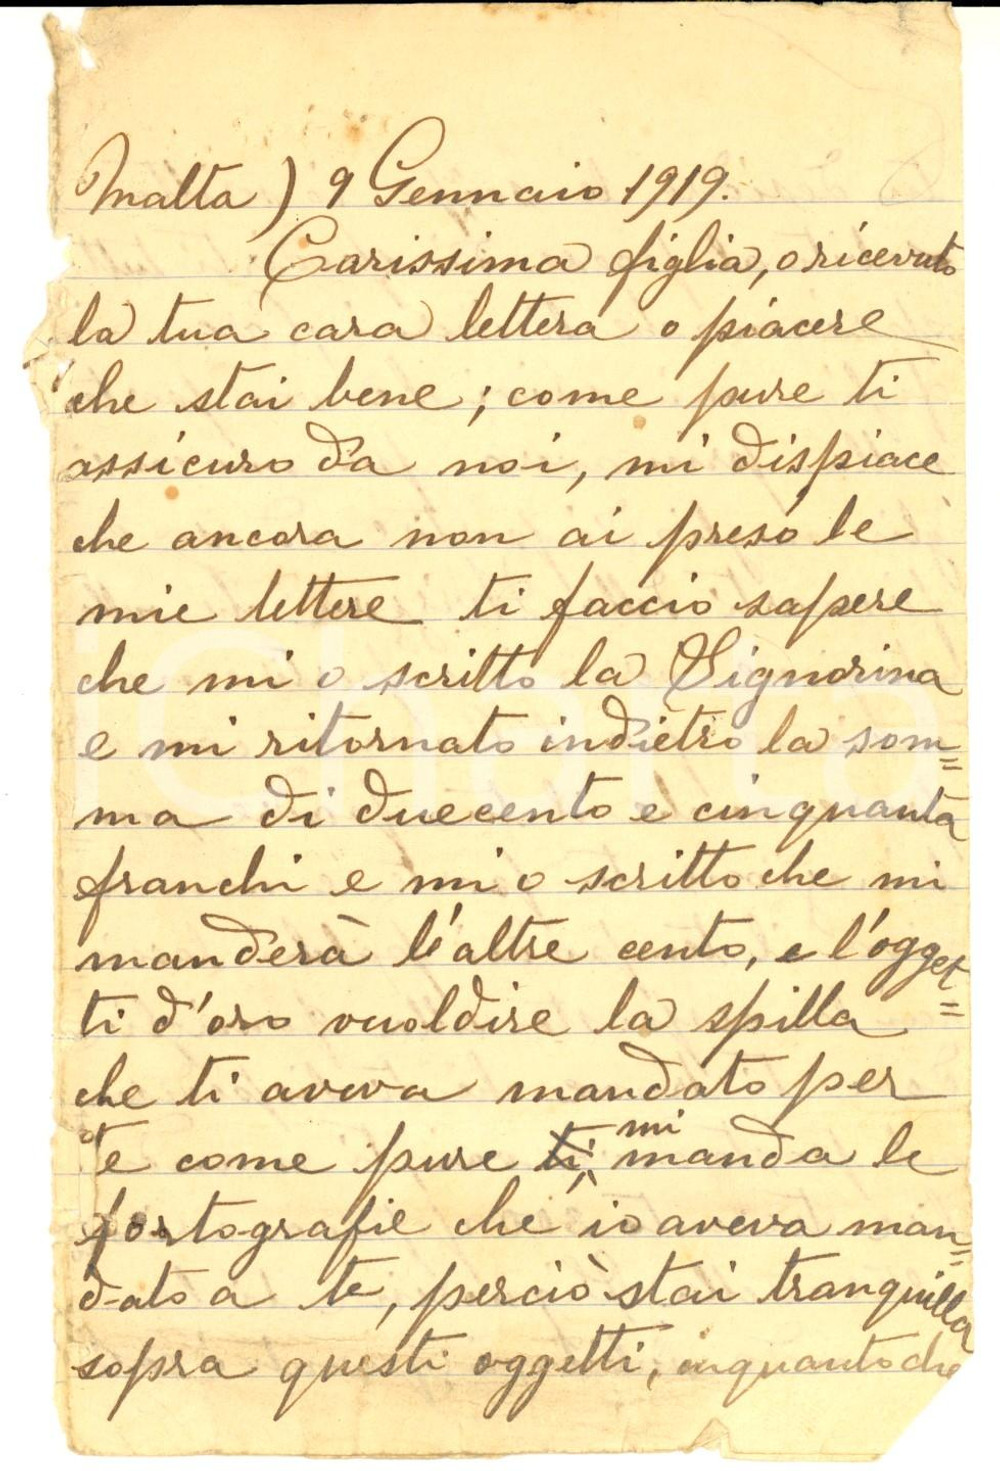 Malta) 9 Gennaio 1919.
Carissima figlia, o ricevuto
la tua cara lettera o piacere
che stai bene; come pure ti
assicuro da noi, mi dispiace
che ancora non ai preso le
mie lettere ti faccio sapere
che mi o scritto la Signorina
e mi ritornato indietro la som=
ma di duecento e cinquanta
franchi e mi o scritto che mi
manderà l'altre cento, e l'ogget=
ti d'oro vuoldire la spilla
che ti aveva mandato per
te come pure ti mi manda le
fortografie che io aveva man=
dato a te, perciò stai tranquilla
sopra questi oggetti, inquanto che